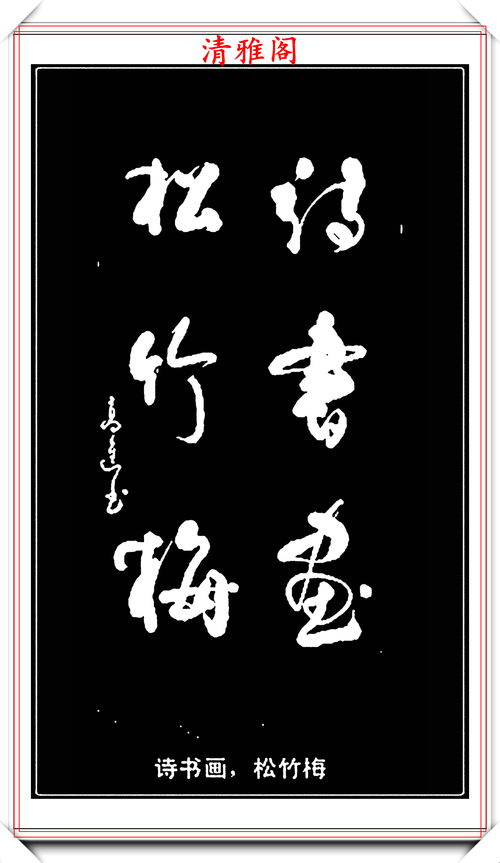 清雅阁
詩書畫
松竹梅
诗书画，松竹梅